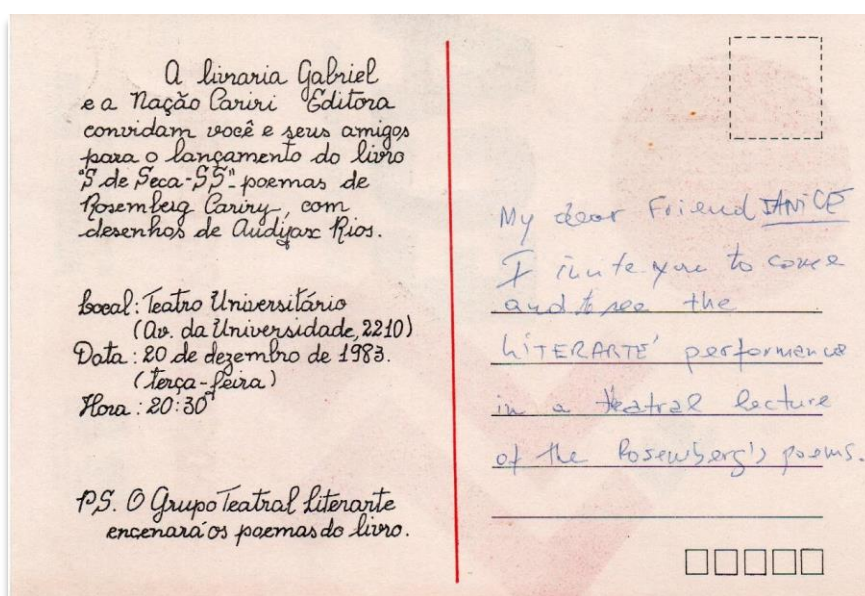 A livraria Gabriel
e a Nação Cariri Editora
convidam você e seus amigos
para o lançamento do livro
"S de Seca-SS" poemas de
Rosemberg Cariry, com
desenhos de Audifax Rios.
Local: Teatro Universitário
(Av. da Universidade, 2210)
Data: 20 de dezembro de 1983.
(terça-feira)
Hora: 20:30
P.S. O Grupo Teatral Literarte
encenará os poemas do livro.
My dear Friend JANICE
I invite you to come
and to see the
LITERARTE' performance
in a teatral lecture
of the Rosemberg's poems.